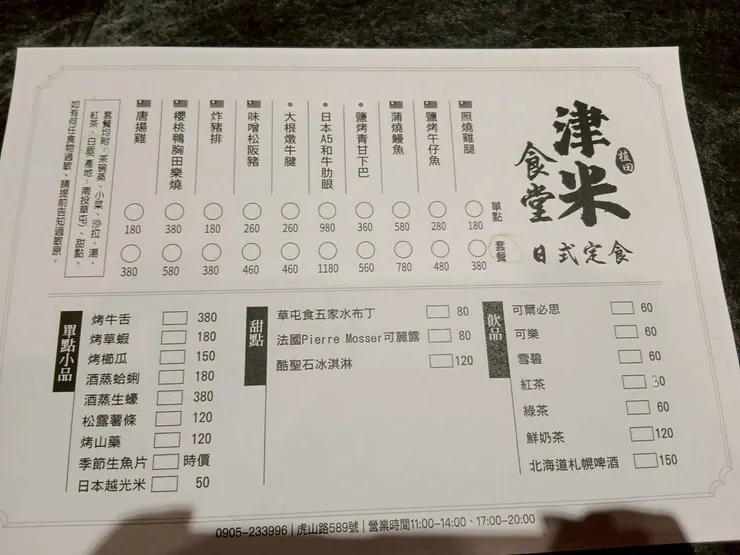 津米
食堂
植田
日式定食
單點
套餐
照燒雞腿 180 380
鹽烤午仔魚 280 480
蒲燒鰻魚 580 780
鹽烤青甘下巴 360 560
日本A5和牛肋眼 980 1180
大根燉牛腱 260 460
味噌松阪豬 260 460
炸豬排 180 380
櫻桃鴨胸田樂燒 380 580
唐揚雞 180 380
套餐均附：茶碗蒸、小菜、沙拉、湯、
紅茶、白飯(產地：南投草屯)、甜點。
如有何任食物過敏，請提前告知過敏原。
單點小品
烤牛舌 380
烤草蝦 180
烤櫛瓜 150
酒蒸蛤蜊 180
酒蒸生蠔 380
松露薯條 120
烤山藥 120
季節生魚片 時價
日本越光米 50
甜點
草屯食五家水布丁 80
法國Pierre Mosser可麗露 80
酷聖石冰淇淋 120
飲品
可爾必思 60
可樂 60
雪碧 60
紅茶 30
綠茶 60
鮮奶茶 120
北海道札幌啤酒 150
0905-233996 | 虎山路589號 | 營業時間11:00-14:00、17:00-20:00